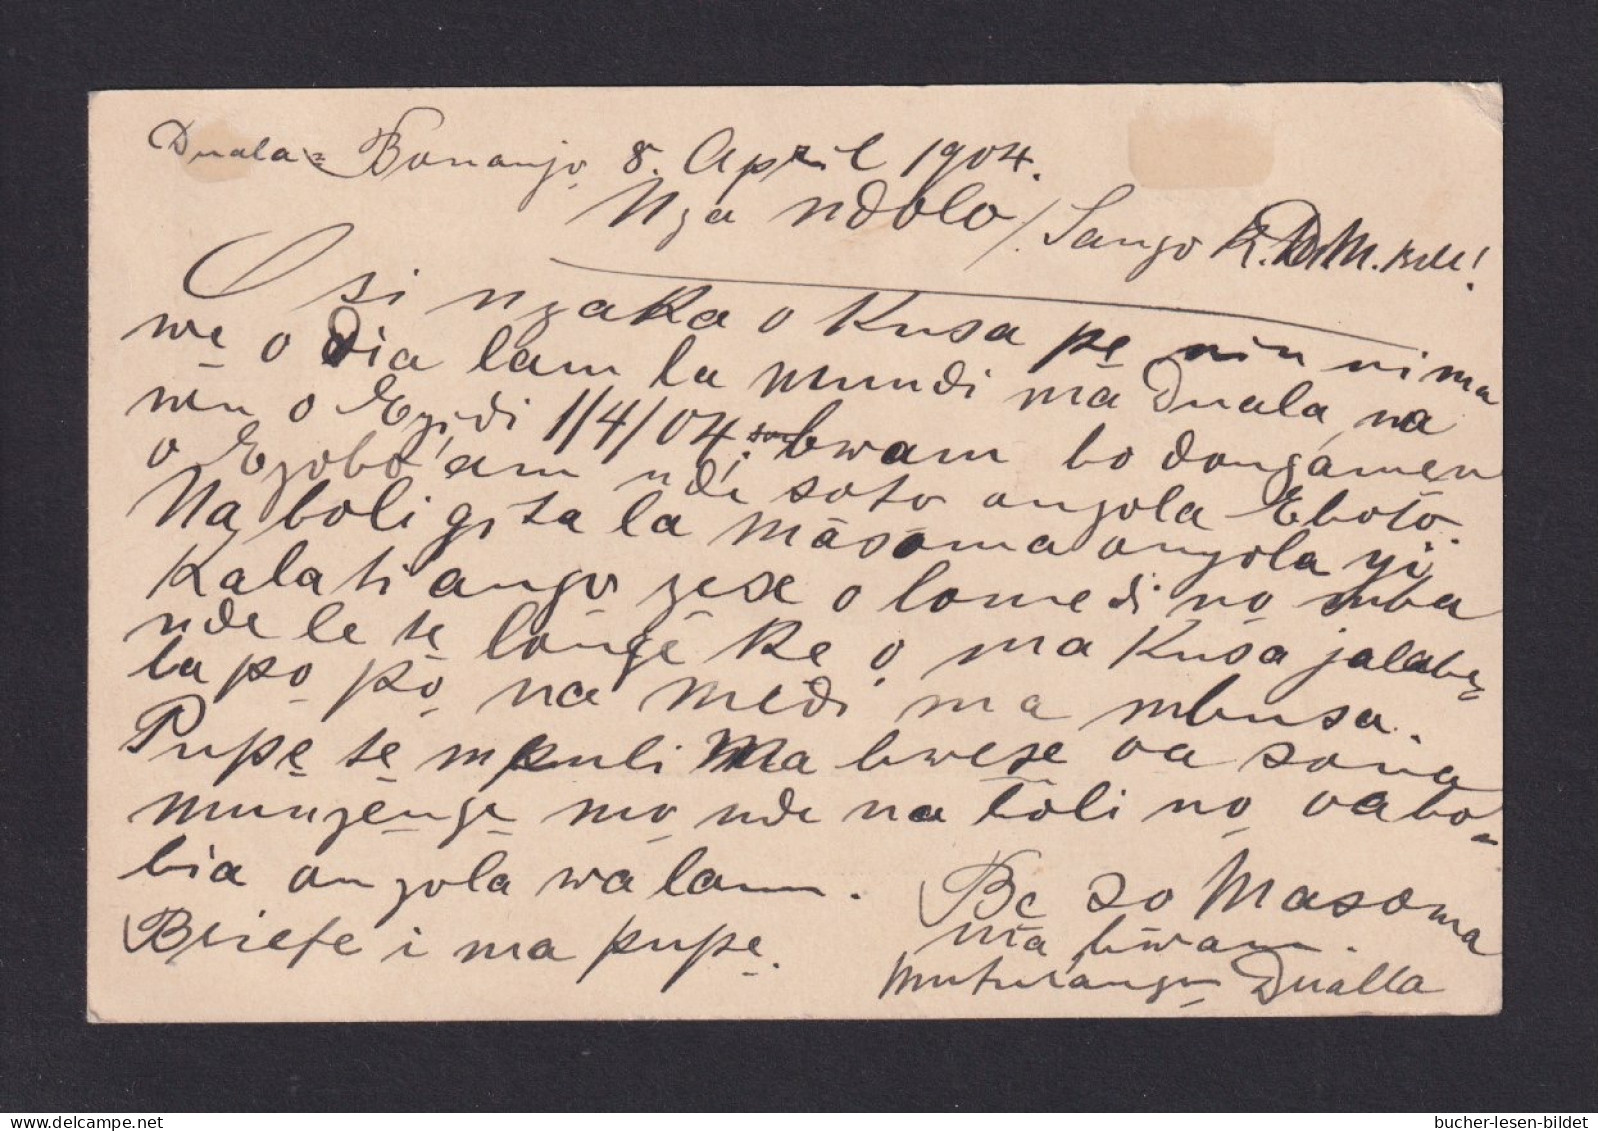 Duala = Bonanjo, 8. April 1904.
Nga ndolo / Sango K. D. M. Bell!
O si ngaka o kusa pẹ nin ni ma
wẹ o dia lam la mundi ma Duala, na
nin o Egidi 1/4/04. bwam bo dongamen
o Ezobo'am ndi soto angola Eboto.
Na boli gita la masoma angola yi
Kalati ango yese o lomedi no mba
nde le tẹ longẹ ke o ma kusa jalabẹ
la pọ pọ na medi ma mbusa.
Pupẹ tẹ mpuli Ma bwese oa sona
munyengẹ mo nde na boli no oa bo-
bia angola wa lam.
Briefe i ma pupẹ.
Be so Masoma
ma bwam.
Muturangu Dualla
bucher-lesen-bildet